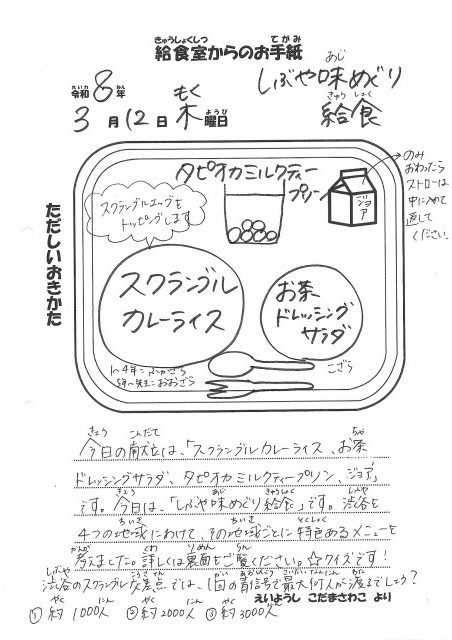 給食室からのお手紙
しぶや味めぐり
給食
令和8年
3月12日木曜日
ただしいおきかた
タピオカミルクティー
プリン
ジョア
のみ
おわったら
ストローは
中に入れて
返して
ください。
スクランブルエッグを
トッピングします
スクランブル
カレーライス
お茶
ドレッシング
サラダ
1~4年:ふかざら
5年~先生:おおざら
こざら
今日の献立は、「スクランブルカレーライス、お茶
ドレッシングサラダ、タピオカミルクティープリン、ジョア」
です。今日は、「しぶや味めぐり給食」です。渋谷を
4つの地域にわけて、その地域ごとに特色あるメニューを
考えました。詳しくは裏面をご覧ください。☆クイズです!
渋谷のスクランブル交差点では、1回の青信号で最大何人が渡るでしょう?
えいようし こだまさわこ より
①約1000人 ②約2000人 ③約3000人